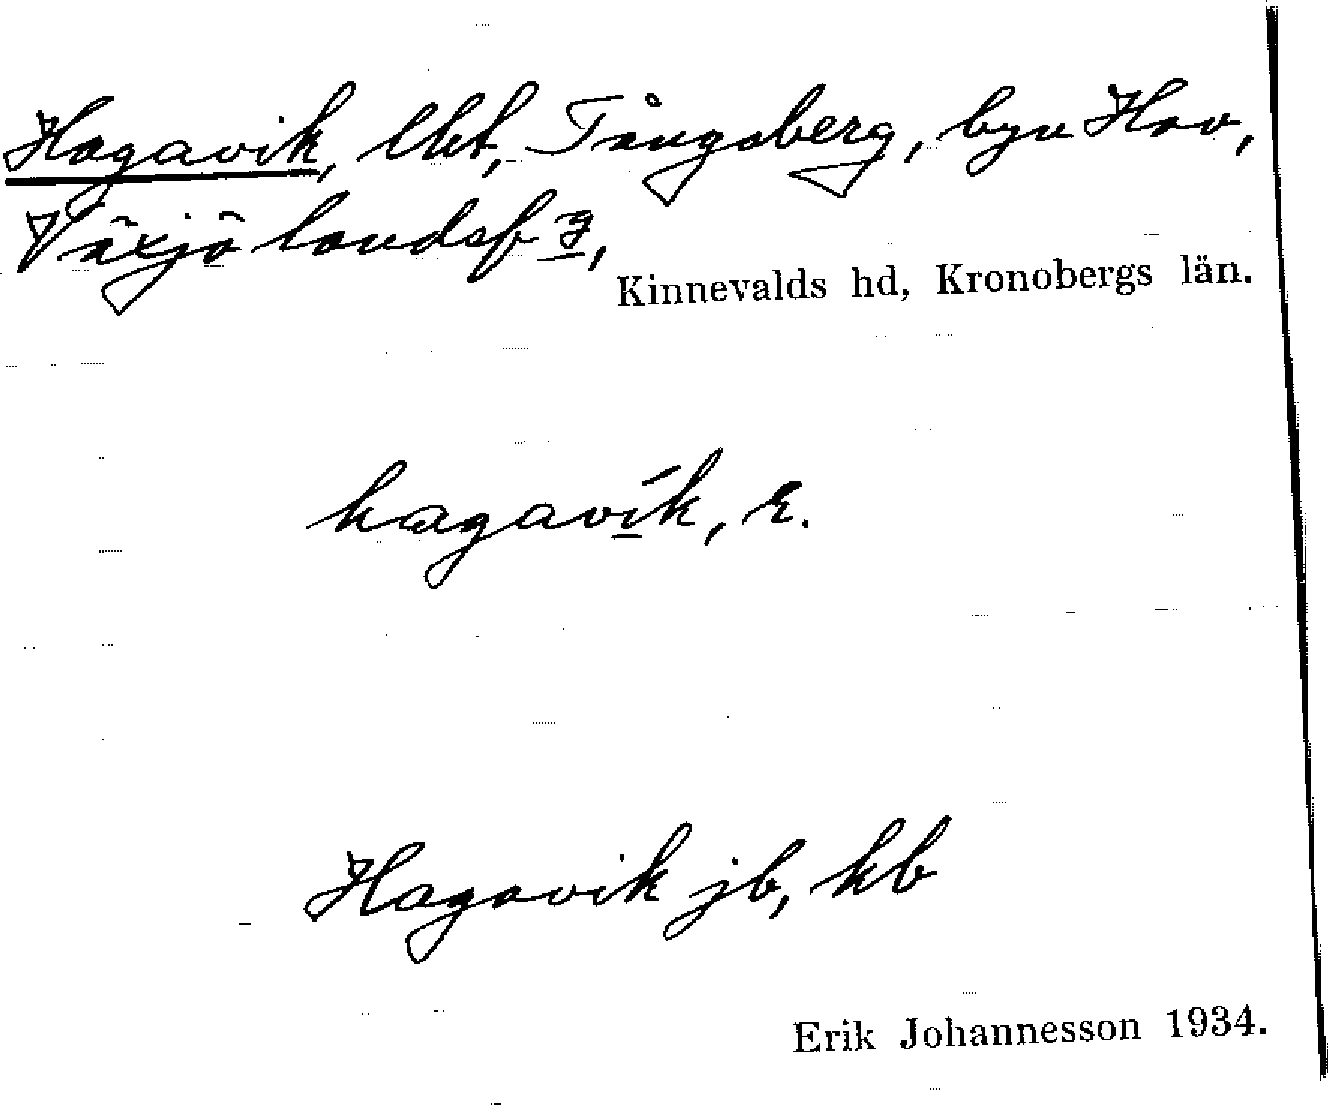 Hagavik, lht, Tångsberg, byn Hov,
Växjö landsf
Kinnevalds hd, Kronobergs län.
hagavik, r.
Hagavik jb, kb
Erik Johannesson 1934.